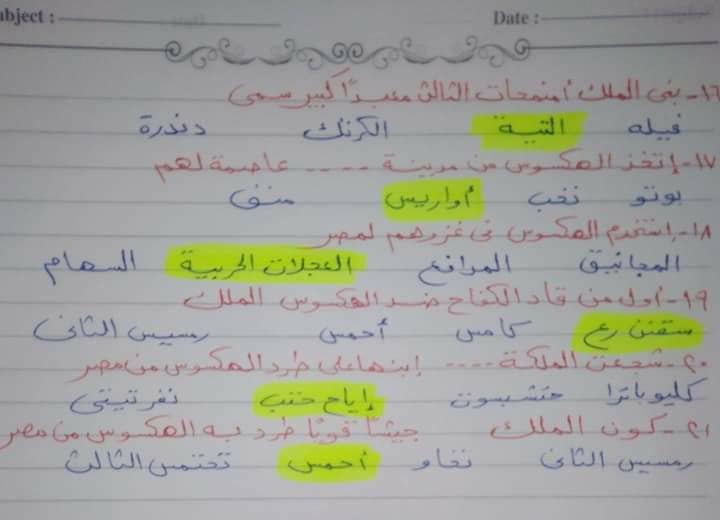 ubject :
Date :
١٦- بنى الملك أمنمحات الثالث معبدًا كبير سمى
فيله التيه الكرنك دندرة
١٧- إتخذ الهكسوس من مدينة ---- عاصمة لهم
بوتو نخب أواريس منف
١٨- إستخدم الهكسوس فى غزوهم لمصر
المجانيق المدافع العجلات الحربية السهام
١٩- أول من قاد الكفاح ضد الهكسوس الملك
سقنن رع كامس أحمس رمسيس الثانى
٢٠- شجعت الملكة ---- إبنها على طرد الهكسوس من مصر
كليوباترا حتشبسوت إياح حتب نفرتيتى
٢١- كون الملك جيشًا قويًا طرد به الهكسوس من مصر
رمسيس الثانى نخاو أحمس تحتمس الثالث